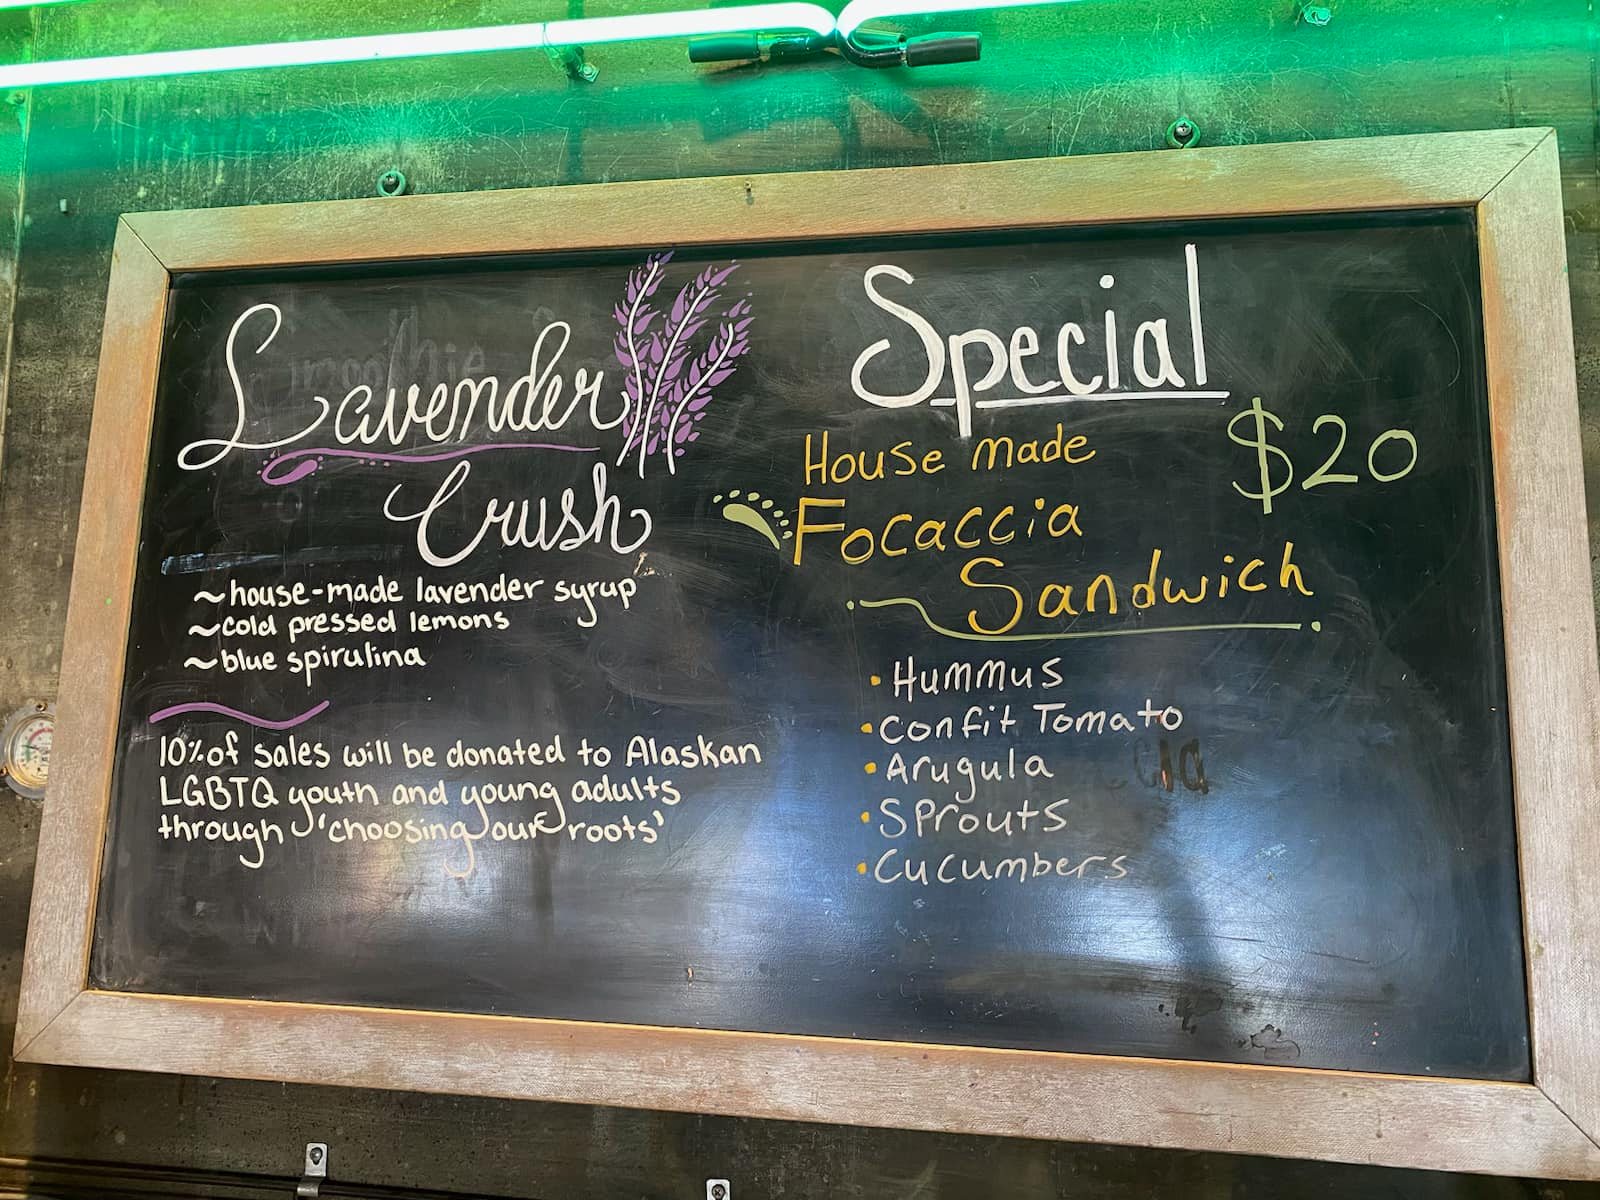 Lavender
Crush
~house-made lavender syrup
~cold pressed lemons
~blue spirulina
10% of sales will be donated to Alaskan
LGBTQ youth and young adults
through 'choosing our roots'
Special
House made
$20
Focaccia
Sandwich
• Hummus
• Confit Tomato
• Arugula
• Sprouts
• Cucumbers